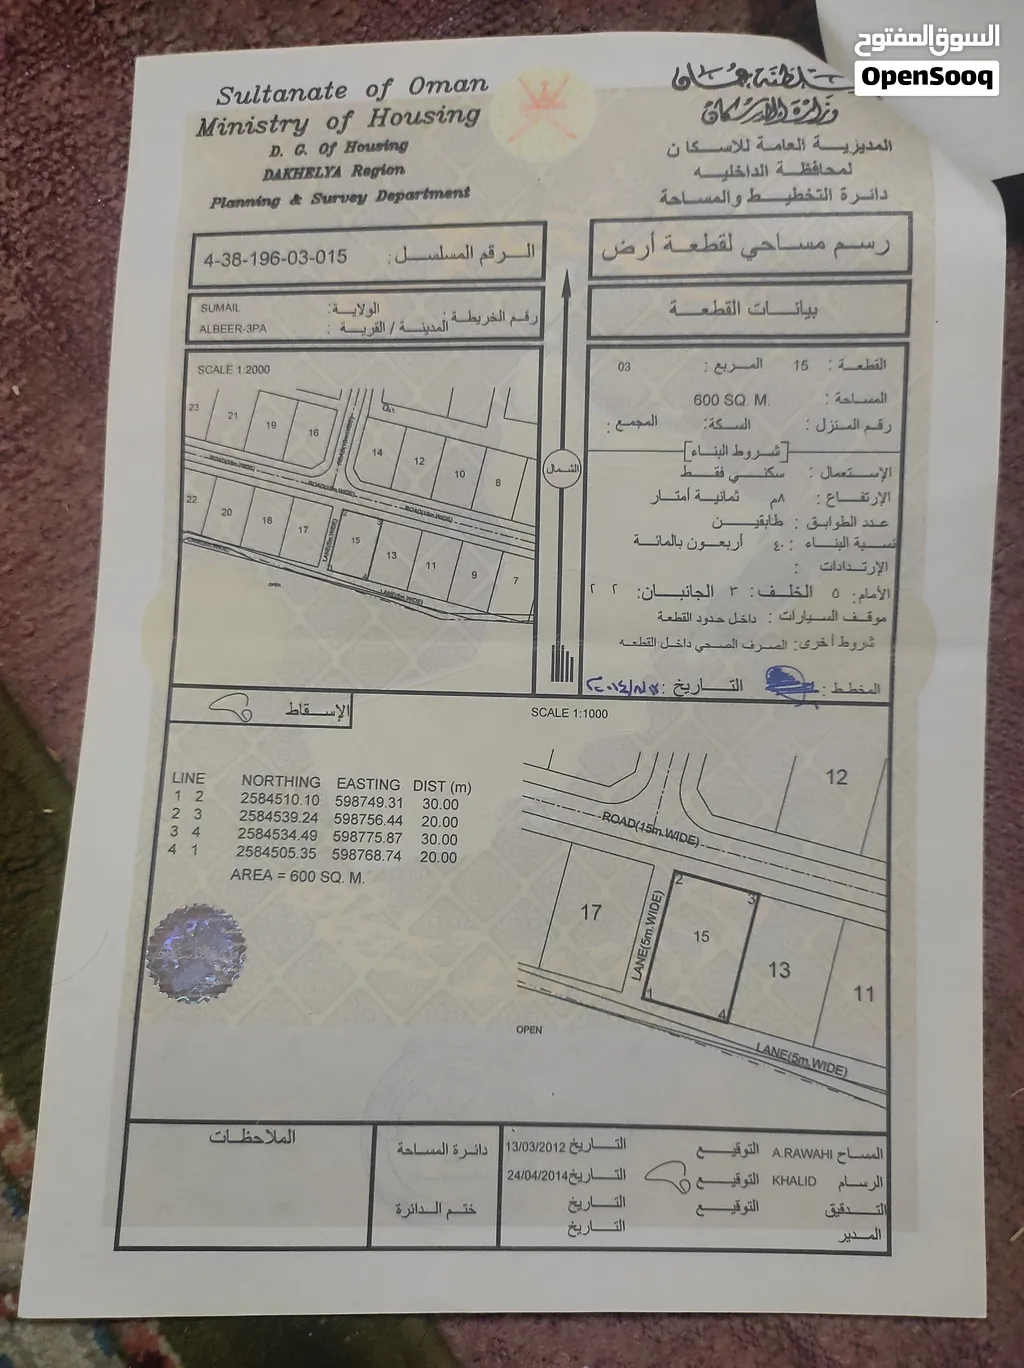 السوق المفتوح
OpenSooq
Sultanate of Oman
Ministry of Housing
D. G. Of Housing
DAKHELYA Region
Planning & Survey Department
سلطنة عمان
وزارة الإسكان
المديرية العامة للاسكان
لمحافظة الداخليه
دائرة التخطيط والمساحة
الرقم المسلسل : 4-38-196-03-015
رسم مساحي لقطعة أرض
رقم الخريطة :
الولاية: SUMAIL
المدينة / القرية : ALBEER-3PA
بيانات القطعة
SCALE 1:2000
23
21
19
16
14
12
10
8
ROAD(15m.WIDE)
ROAD(15m.WIDE)
ROAD(15m.WIDE)
22
20
18
17
LANE(5m.WIDE)
2
3
15
13
11
9
7
1
4
LANE(5m.WIDE)
LANE(5m.WIDE)
OPEN
الشمال
القطعة : 15 المربع : 03
المساحة : 600 SQ. M.
رقم المنزل : السكة: المجمع :
شروط البناء
الإستعمال : سكني فقط
الإرتفاع : ٨م ثمانية أمتار
عدد الطوابق : طابقين
نسبة البناء : ٤٠ أربعون بالمائة
الإرتدادات :
الأمام: ٥ الخلف: ٣ الجانبان: ٢ ٢
موقف السيارات : داخل حدود القطعة
شروط أخرى: الصرف الصحي داخل القطعه
المخطط : التاريخ :
الإسقاط
SCALE 1:1000
LINE NORTHING EASTING DIST (m)
1 2 2584510.10 598749.31 30.00
2 3 2584539.24 598756.44 20.00
3 4 2584534.49 598775.87 30.00
4 1 2584505.35 598768.74 20.00
AREA = 600 SQ. M.
12
ROAD(15m.WIDE)
17
LANE(5m.WIDE)
2
3
15
1
4
13
11
OPEN
LANE(5m.WIDE)
الملاحظات
دائرة المساحة
ختم الدائرة
المساح A.RAWAHI التوقيع التاريخ 13/03/2012
الرسام KHALID التوقيع التاريخ 24/04/2014
التدقيق التوقيع التاريخ
المدير التاريخ